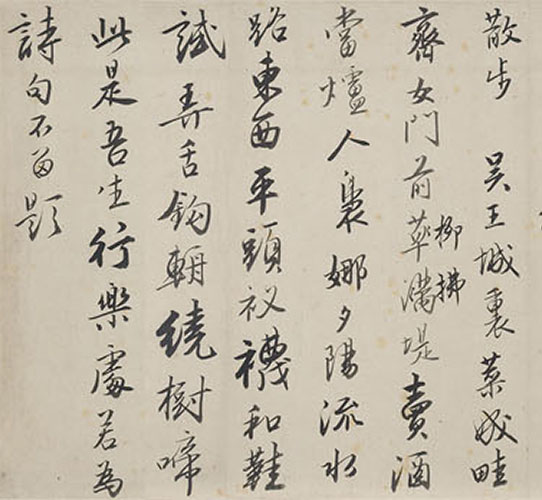 散步 吳王城裏菜成畦
柳拂
齊女門前草滿堤賣酒
當爐人裊娜夕陽流水
路東西平頭衩襪和鞋
試弄舌鉤輈繞樹啼
此是吾生行樂處若為
詩句不留題